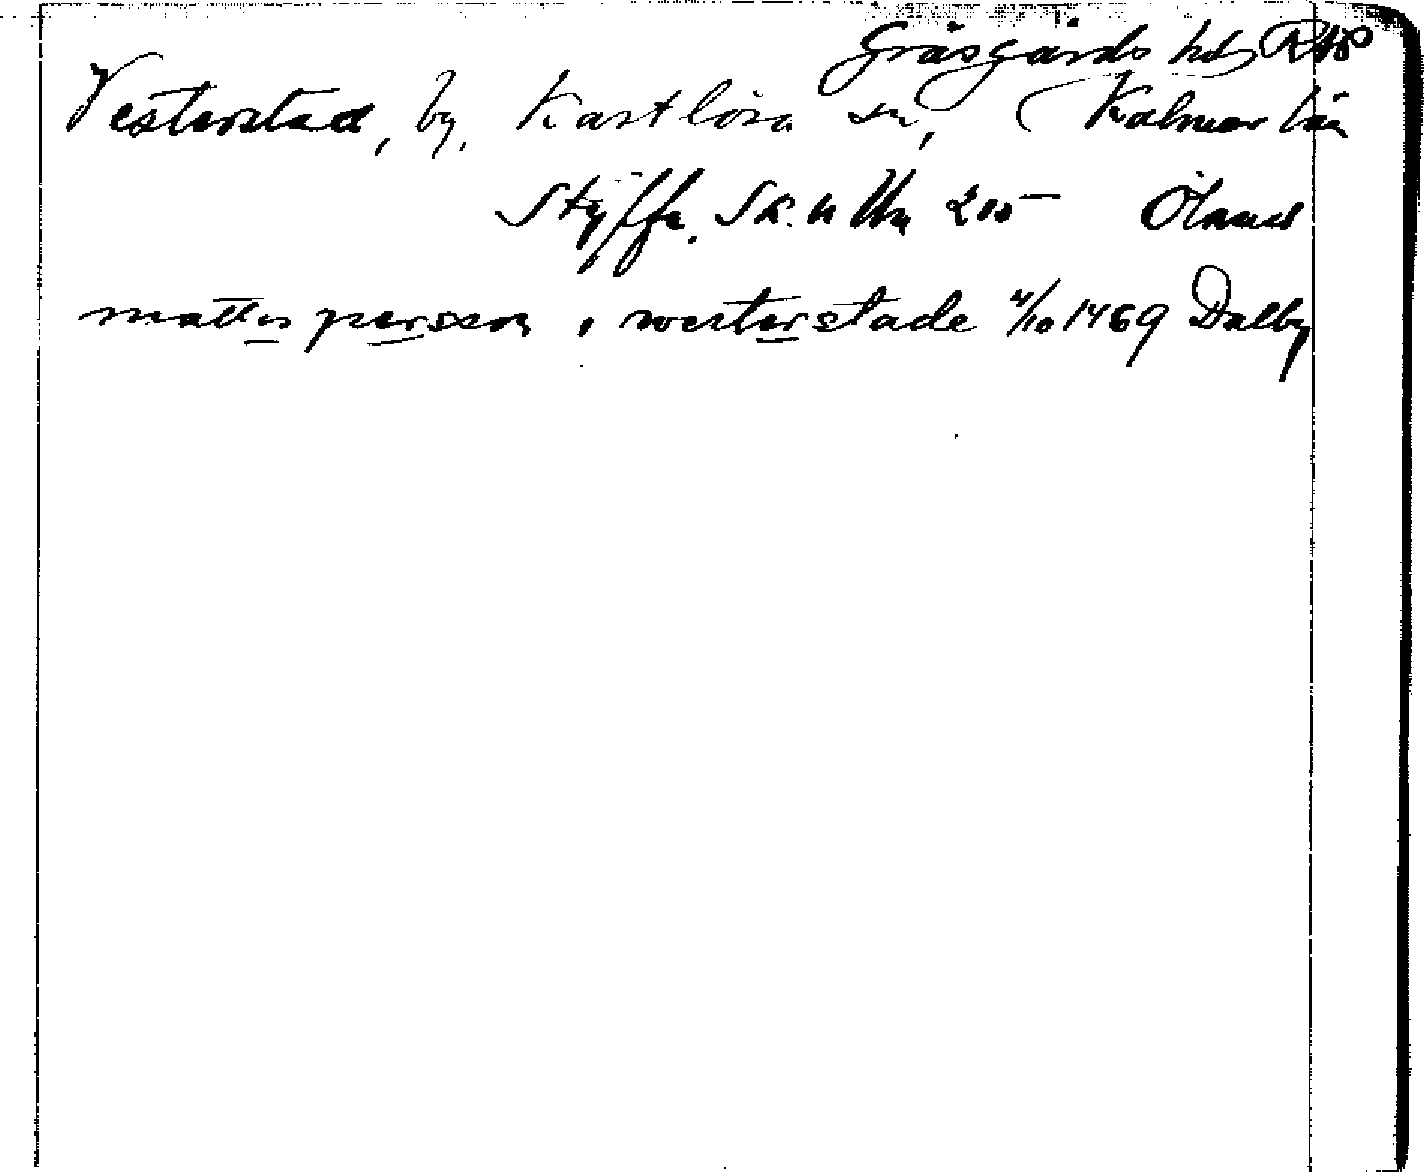 Gräsgårds hd, RAP
Vesterstad, by, Kastlösa sn, Kalmar län
Styffe, Sk. u Un 215 Öland
mattis persson i westerstade 4/10 1469 Dalby